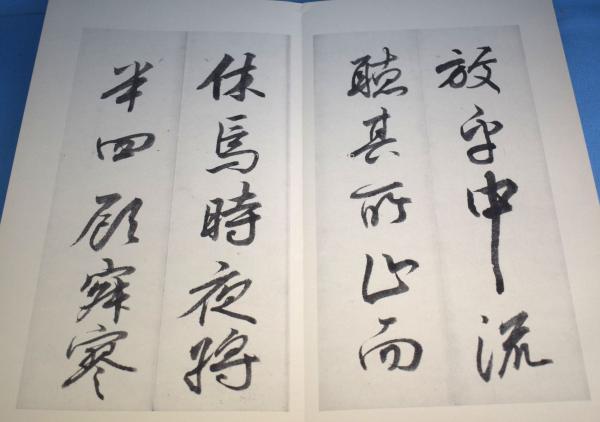 放乎中流
聽其所止而
休焉時夜將
半四顧寂寥